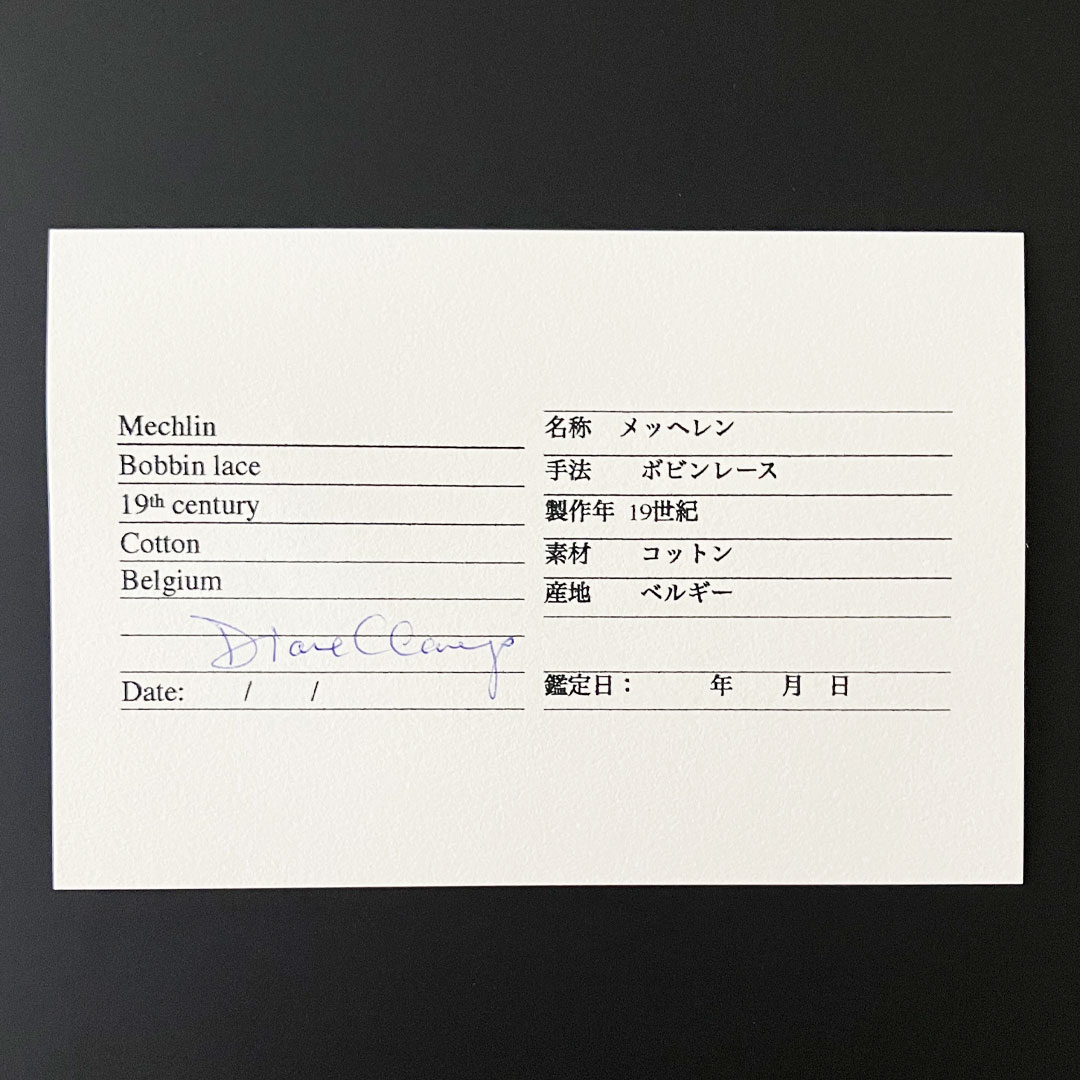 Mechlin
Bobbin lace
19th century
Cotton
Belgium
Date: / /
名称 メッヘレン
手法 ボビンレース
製作年 19世紀
素材 コットン
産地 ベルギー
鑑定日： 年 月 日